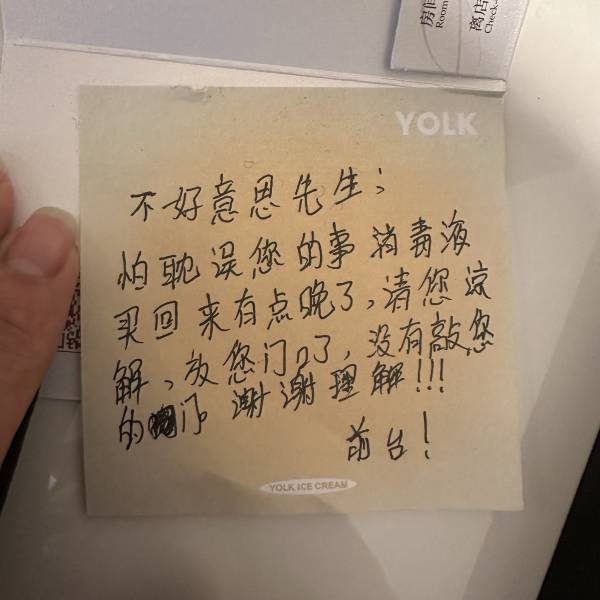 房间
Room
离店
Check-
YOLK
不好意思先生;
怕耽误您的事消毒液
买回来有点晚了,请您谅
解、放您门口了,没有敲您
的门。谢谢理解!!!
前台!
YOLK ICE CREAM